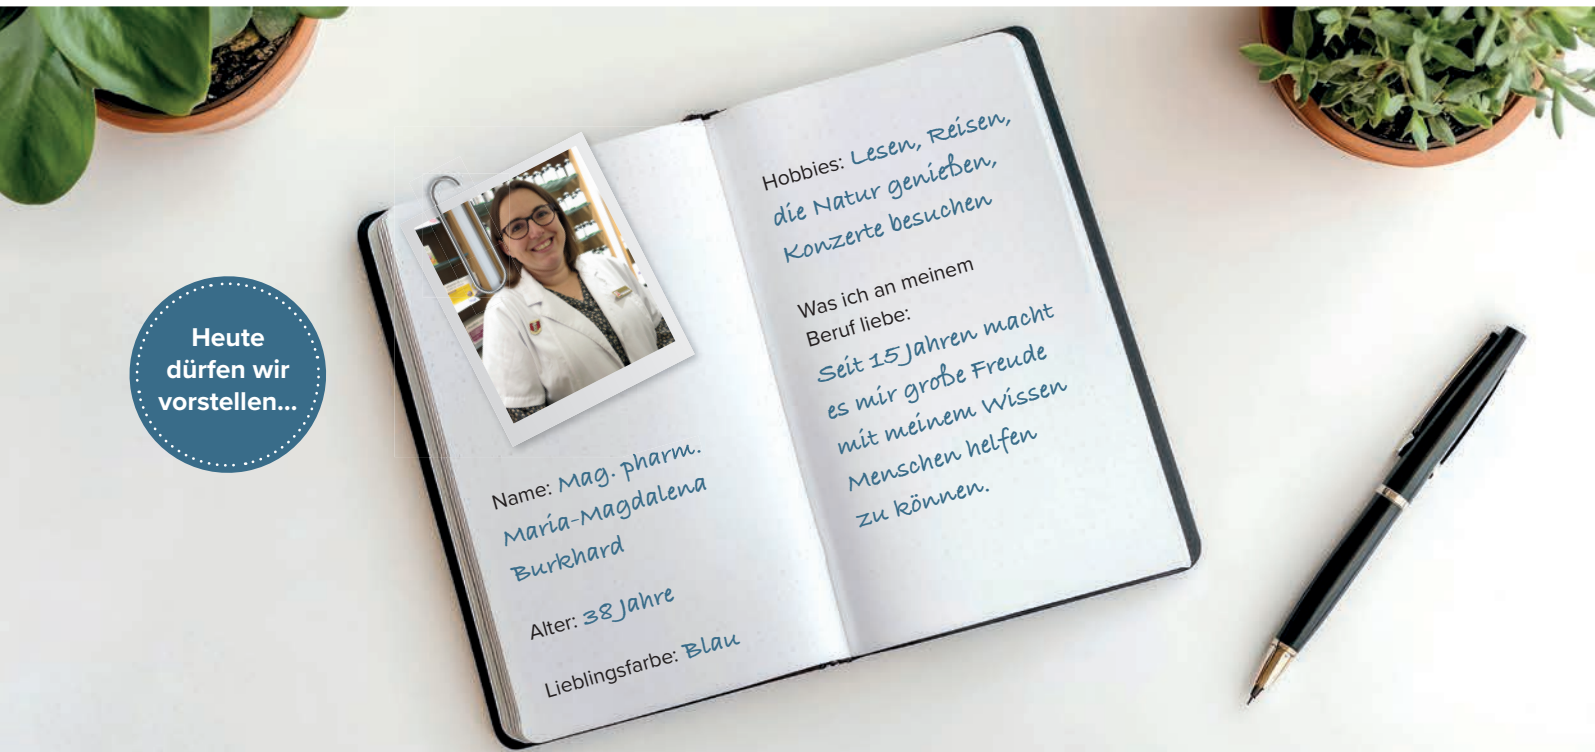 Heute
dürfen wir
vorstellen...
Name: Mag. pharm.
Maria-Magdalena
Burkhard
Alter: 38 Jahre
Lieblingsfarbe: Blau
Hobbies: Lesen, Reisen,
die Natur genießen,
Konzerte besuchen
Was ich an meinem
Beruf liebe:
Seit 15 Jahren macht
es mir große Freude
mit meinem Wissen
Menschen helfen
zu können.